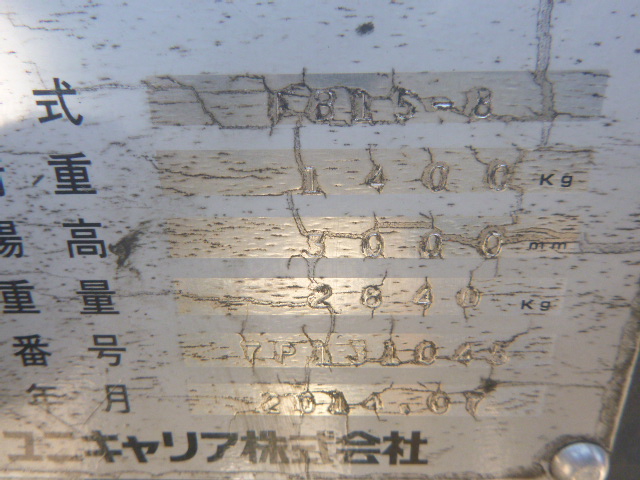 式 FB15-8
重 1400 Kg
揚高 3000 mm
重量 2840 Kg
番号
年月
ユニキャリア株式会社